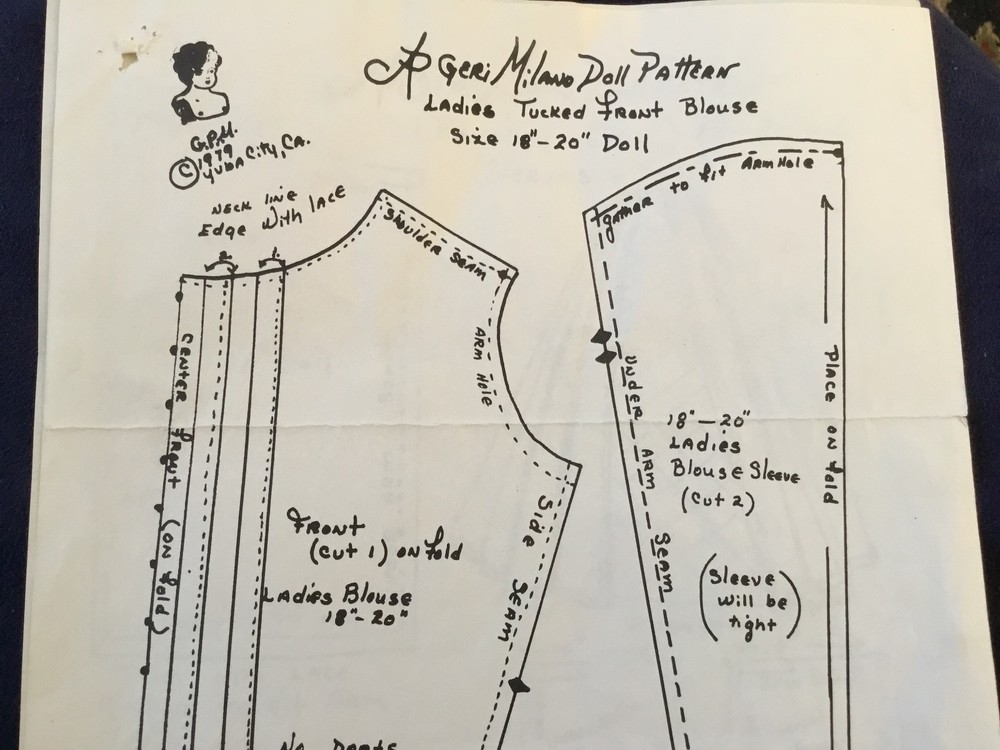 A Geri Milano Doll Pattern
Ladies Tucked Front Blouse
Size 18"-20" Doll
G.P.M.
© 1979
Yuba City, CA.
Neck line
Edge with lace
2
1
Shoulder Seam
Arm Hole
Center Front (on fold)
Front
(cut 1) on fold
Ladies Blouse
18"-20"
Side Seam
No Darts
gather to fit Arm Hole
Under Arm Seam
Place on fold
18"-20"
Ladies
Blouse Sleeve
(cut 2)
(Sleeve
will be
tight)